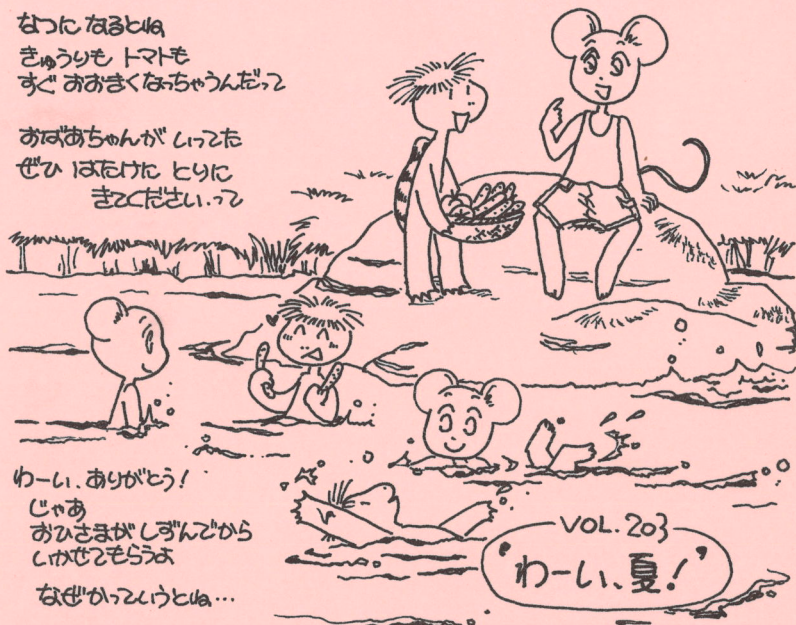 なつに なるとね
きゅうりも トマトも
すぐ おおきくなっちゃうんだって
おばあちゃんが いってた
ぜひ はたけに とりに
きてください.って
わーい、ありがとう!
じゃあ
おひさまが しずんでから
いかせてもらうよ
なぜかっていうとね…
VOL.203
"わーい、夏!"